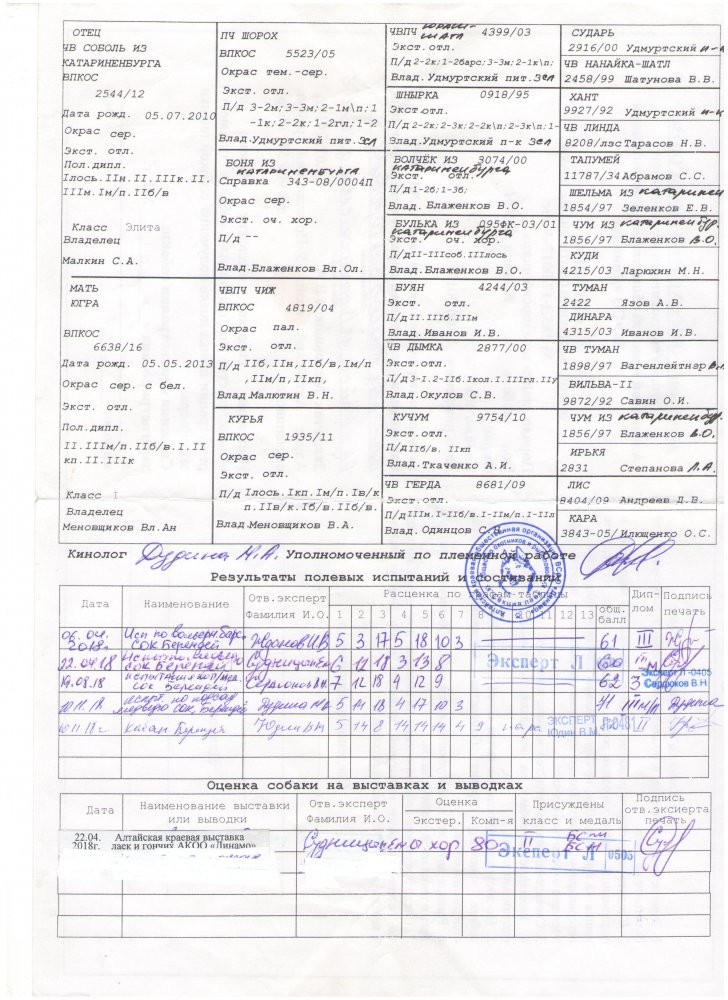 ОТЕЦ
ЧВ СОБОЛЬ ИЗ
КАТАРИНЕНБУРГА
ВПКОС
2544/12
Дата рожд. 05.07.2010
Окрас сер.
Экст. отл.
Пол.дипл.
Iлось.IIн.II.IIIк.II.
IIIм.Iм/п.IIб/в
Класс Элита
Владелец
Малкин С.А.
ПЧ ШОРОХ
ВПКОС 5523/05
Окрас тем.-сер.
Экст. отл.
П/д 3-2м;3-3м;2-1м\п;1
-1к;2-2к;1-2гл;1-2
Влад.Удмуртский пит.Зел
БОНЯ ИЗ
КАТАРИНЕНБУРГА
Справка 343-08/0004П
Окрас сер.
Экст. оч. хор.
П/д --
Влад.Блаженков Вл.Ол.
ЧВПЧ ЮРАШ-
ШАТЛ 4399/03
Экст.отл.
П/д 2-2к;1-2барс;3-3м;2-1к\п;
Влад.Удмуртский пит.Зел
ШНЫРКА 0918/95
Экст.отл.
П/д 2-2к;2-3к;2-2к\п;2-3к\п;1-
Влад.Удмуртский п-к Зел
ВОЛЧЁК ИЗ 3074/00
Катариненбурга
Экст. отл.
П/д 1-2б;1-3б;
Влад. Блаженков В.О.
БУЛЬКА ИЗ 095ФК-03/01
Катариненбурга
Экст. оч. хор.
П/дII-IIIсоб.IIIлось
Влад.Блаженков В.О.
СУДАРЬ
2916/00 Удмуртский п-к
ЧВ НАНАЙКА-ШАТЛ
2458/99 Шатунова В.В.
ХАНТ
9927/92 Удмуртский п-к
ЧВ ЛИНДА
8208/лзсТарасов Н.В.
ТАПУМЕЙ
11787/34Абрамов С.С.
ШЕЛЬМА ИЗ Катаринен
1854/97 Зеленков Е.В.
ЧУМ ИЗ Катариненбур.
1856/97 Блаженков В.О.
КУДИ
4215/03 Ларюхин М.Н.
МАТЬ
ЮГРА
ВПКОС
6638/16
Дата рожд. 05.05.2013
Окрас сер. с бел.
Экст. отл.
Пол.дипл.
II.IIIм/п.IIб/в.I.II
кп.II.IIIк
Класс I
Владелец
Меновщиков Вл.Ан
ЧВПЧ ЧИЖ
ВПКОС 4819/04
Окрас пал.
Экст. отл.
П/д IIб,IIн,IIб/в,Iм/п
,IIм/п,IIкп,
Влад.Малютин В.Н.
КУРЬЯ
ВПКОС 1935/11
Окрас сер.
Экст. отл.
П/д Iлось.Iкп.Iм/п.Iв/к
п.IIв/к.Iб/в.IIб/в.
Влад.Меновщиков В.А.
БУЯН 4244/03
Экст. отл.
П/дII.IIIб.IIIм
Влад.Иванов И.В.
ЧВ ДЫМКА 2877/00
Экст.отл.
П/д3-I.2-IIб.Iкол.I.IIIгл.IIу
Влад.Окулов С.В.
КУЧУМ 9754/10
Экст.отл.
П/дIIб/в. IIкп
Влад.Ткаченко А.И.
ЧВ ГЕРДА 8681/09
Экст.отл.
П/дIIIм.I-IIб/в.I-IIм/п.I-IIл
Влад.Одинцов С.В.
ТУМАН
2422 Язов А.В.
ДИНАРА
4315/03 Иванов И.В.
ЧВ ТУМАН
1898/97 Вагенлейтнер В.
ВИЛЬВА-II
9872/92 Савин О.И.
ЧУМ ИЗ Катариненбур.
1856/97 Блаженков В.О.
ИРЬКЯ
2831 Степанова Л.А.
ЛИС
8404/09 Андреев Д.В.
КАРА
3843-05/Илющенко О.С.
Кинолог Дудина Н.А. Уполномоченный по племенной работе
Результаты полевых испытаний и состязаний
Дата Наименование Отв.эксперт Фамилия И.О. Расценка по графам таблицы общ. балл Дип-лом Подпись печать
1 2 3 4 5 6 7 8 9 10 11 12 13
06.04. 2018г. Исп по вольерн барс. СОК Берендей Жданов И.В 5 3 17 5 18 10 3 61 III
22.04.18 СОК Берендей Судницын 6 12 18 3 13 8 60 III м
19.08.18 испытания СОК Берендей Сердюков В.Н. 7 12 18 4 12 9 62 3
10.11.18 медведю СОК Берендей Дудина Н.А 5 14 18 4 17 10 3 71 III м/п Дудина
10.11.18г Кабан Берендей Юдин В.М 5 14 8 14 14 14 4 9 пара II
Эксперт Л
Эксперт Л -0405
Сердюков В.Н
ЭКСПЕРТ Л0401
Юдин В.М.
Оценка собаки на выставках и выводках
Дата Наименование выставки или выводки Отв.эксперт Фамилия И.О. Оценка Экстер. Комп-я Присуждены класс и медаль Подпись отв.эксперта печать
22.04. 2018г. Алтайская краевая выставка лаек и гончих АКОО «Динамо» Судницын о хор 80 II БСМ
БСМ
Эксперт Л 0505